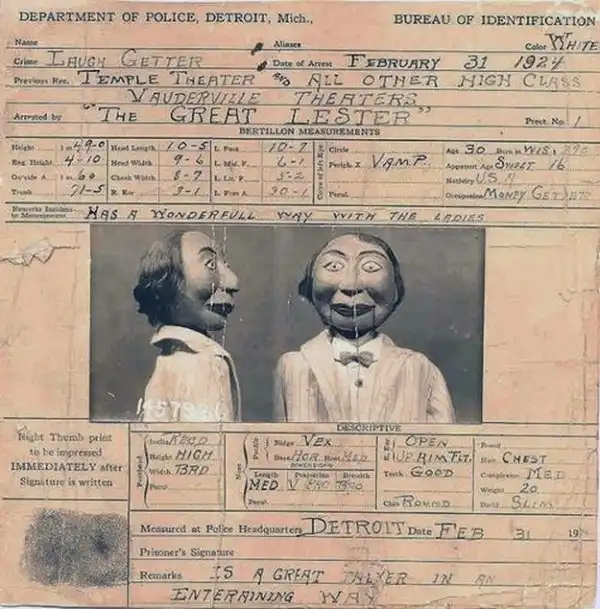 DEPARTMENT OF POLICE, DETROIT, Mich., BUREAU OF IDENTIFICATION
Name Aliases Color WHITE
Crime LAUGH GETTER Date of Arrest FEBRUARY 31 1924
Previous Rec. TEMPLE THEATER AND ALL OTHER HIGH CLASS
VAUDERVILLE THEATERS
Arrested by "THE GREAT LESTER" Prect. No. 1
BERTILLON MEASUREMENTS
Height 1 m 49-0 Head Length 10-5 L. Foot 10-7 Circle Age 30 Born in WIS.
Eng. Height 4-10 Head Width 9-6 L. Mid. F. 6-1 Periph. Z VAMP. Apparent Age SWEET 16
Outside A 1 m 60 Cheek Width 8-7 L. Lit. F. 5-2 Nativity U.S.A
Trunk 71-5 R. Ear 3-1 L. Fore A. 30-1 Pecul. Occupation MONEY GETTER
Remarks Incident to Measurements HAS A WONDERFULL WAY WITH THE LADIES
DESCRIPTIVE
Right Thumb print
to be impressed
IMMEDIATELY after
Signature is written
Forehead Profile Ridge VEX R. Ear OPEN
Height HIGH Base HOR. Root MED RIM FIT. Hair CHEST
Width BRD DIMENSIONS Teeth GOOD Complexion MED
Pecul. Nose Length Projection Breadth Weight 20
MED Pecul. Chin ROUND Build SLIM
Measured at Police Headquarters DETROIT Date FEB 31 19
Prisoner's Signature
Remarks IS A GREAT TALKER IN AN
ENTERAINING WAY